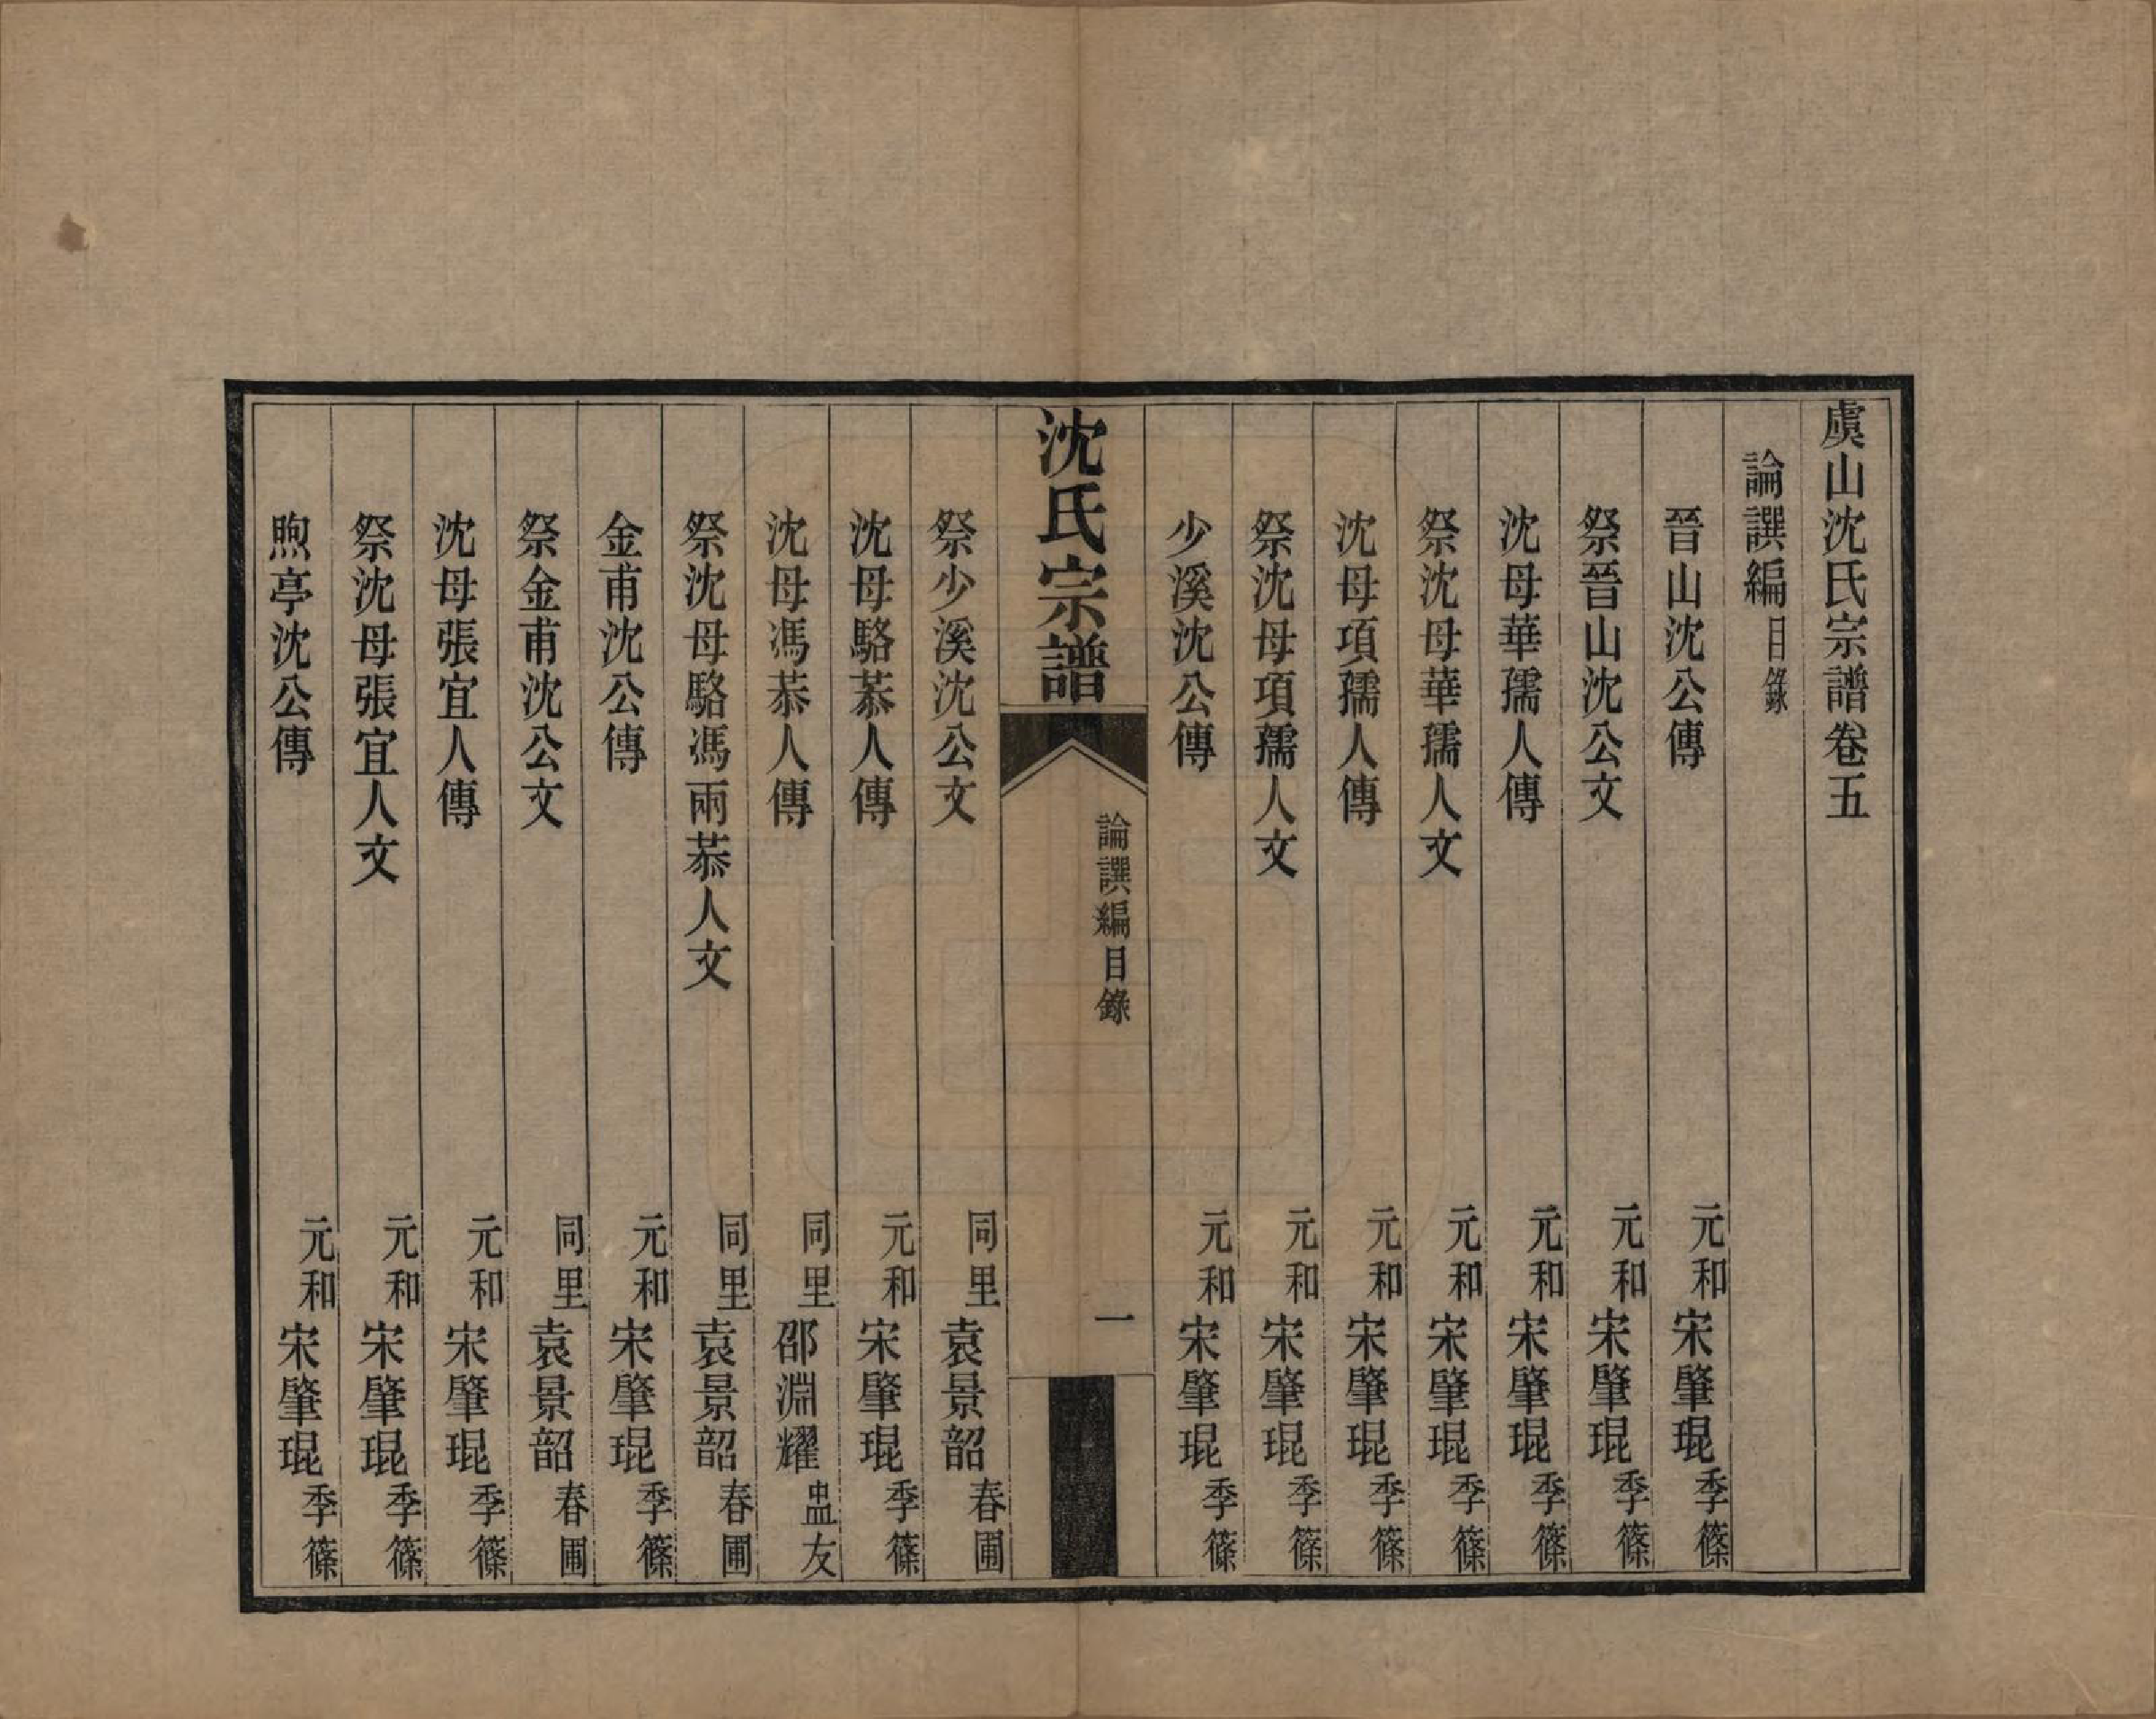 虞山沈氏宗譜卷五
論譔編目錄
晉山沈公傳 元和宋肇琨季篠
祭晉山沈公文 元和宋肇琨季篠
沈母華孺人傳 元和宋肇琨季篠
祭沈母華孺人文 元和宋肇琨季篠
沈母項孺人傳 元和宋肇琨季篠
祭沈母項孺人文 元和宋肇琨季篠
少溪沈公傳 元和宋肇琨季篠
沈氏宗譜 論譔編目錄 一
祭少溪沈公文 同里袁景韶春圃
沈母駱恭人傳 元和宋肇琨季篠
沈母馮恭人傳 同里邵淵耀盅友
祭沈母駱馮兩恭人文 同里袁景韶春圃
金甫沈公傳 元和宋肇琨季篠
祭金甫沈公文 同里袁景韶春圃
沈母張宜人傳 元和宋肇琨季篠
祭沈母張宜人文 元和宋肇琨季篠
煦亭沈公傳 元和宋肇琨季篠